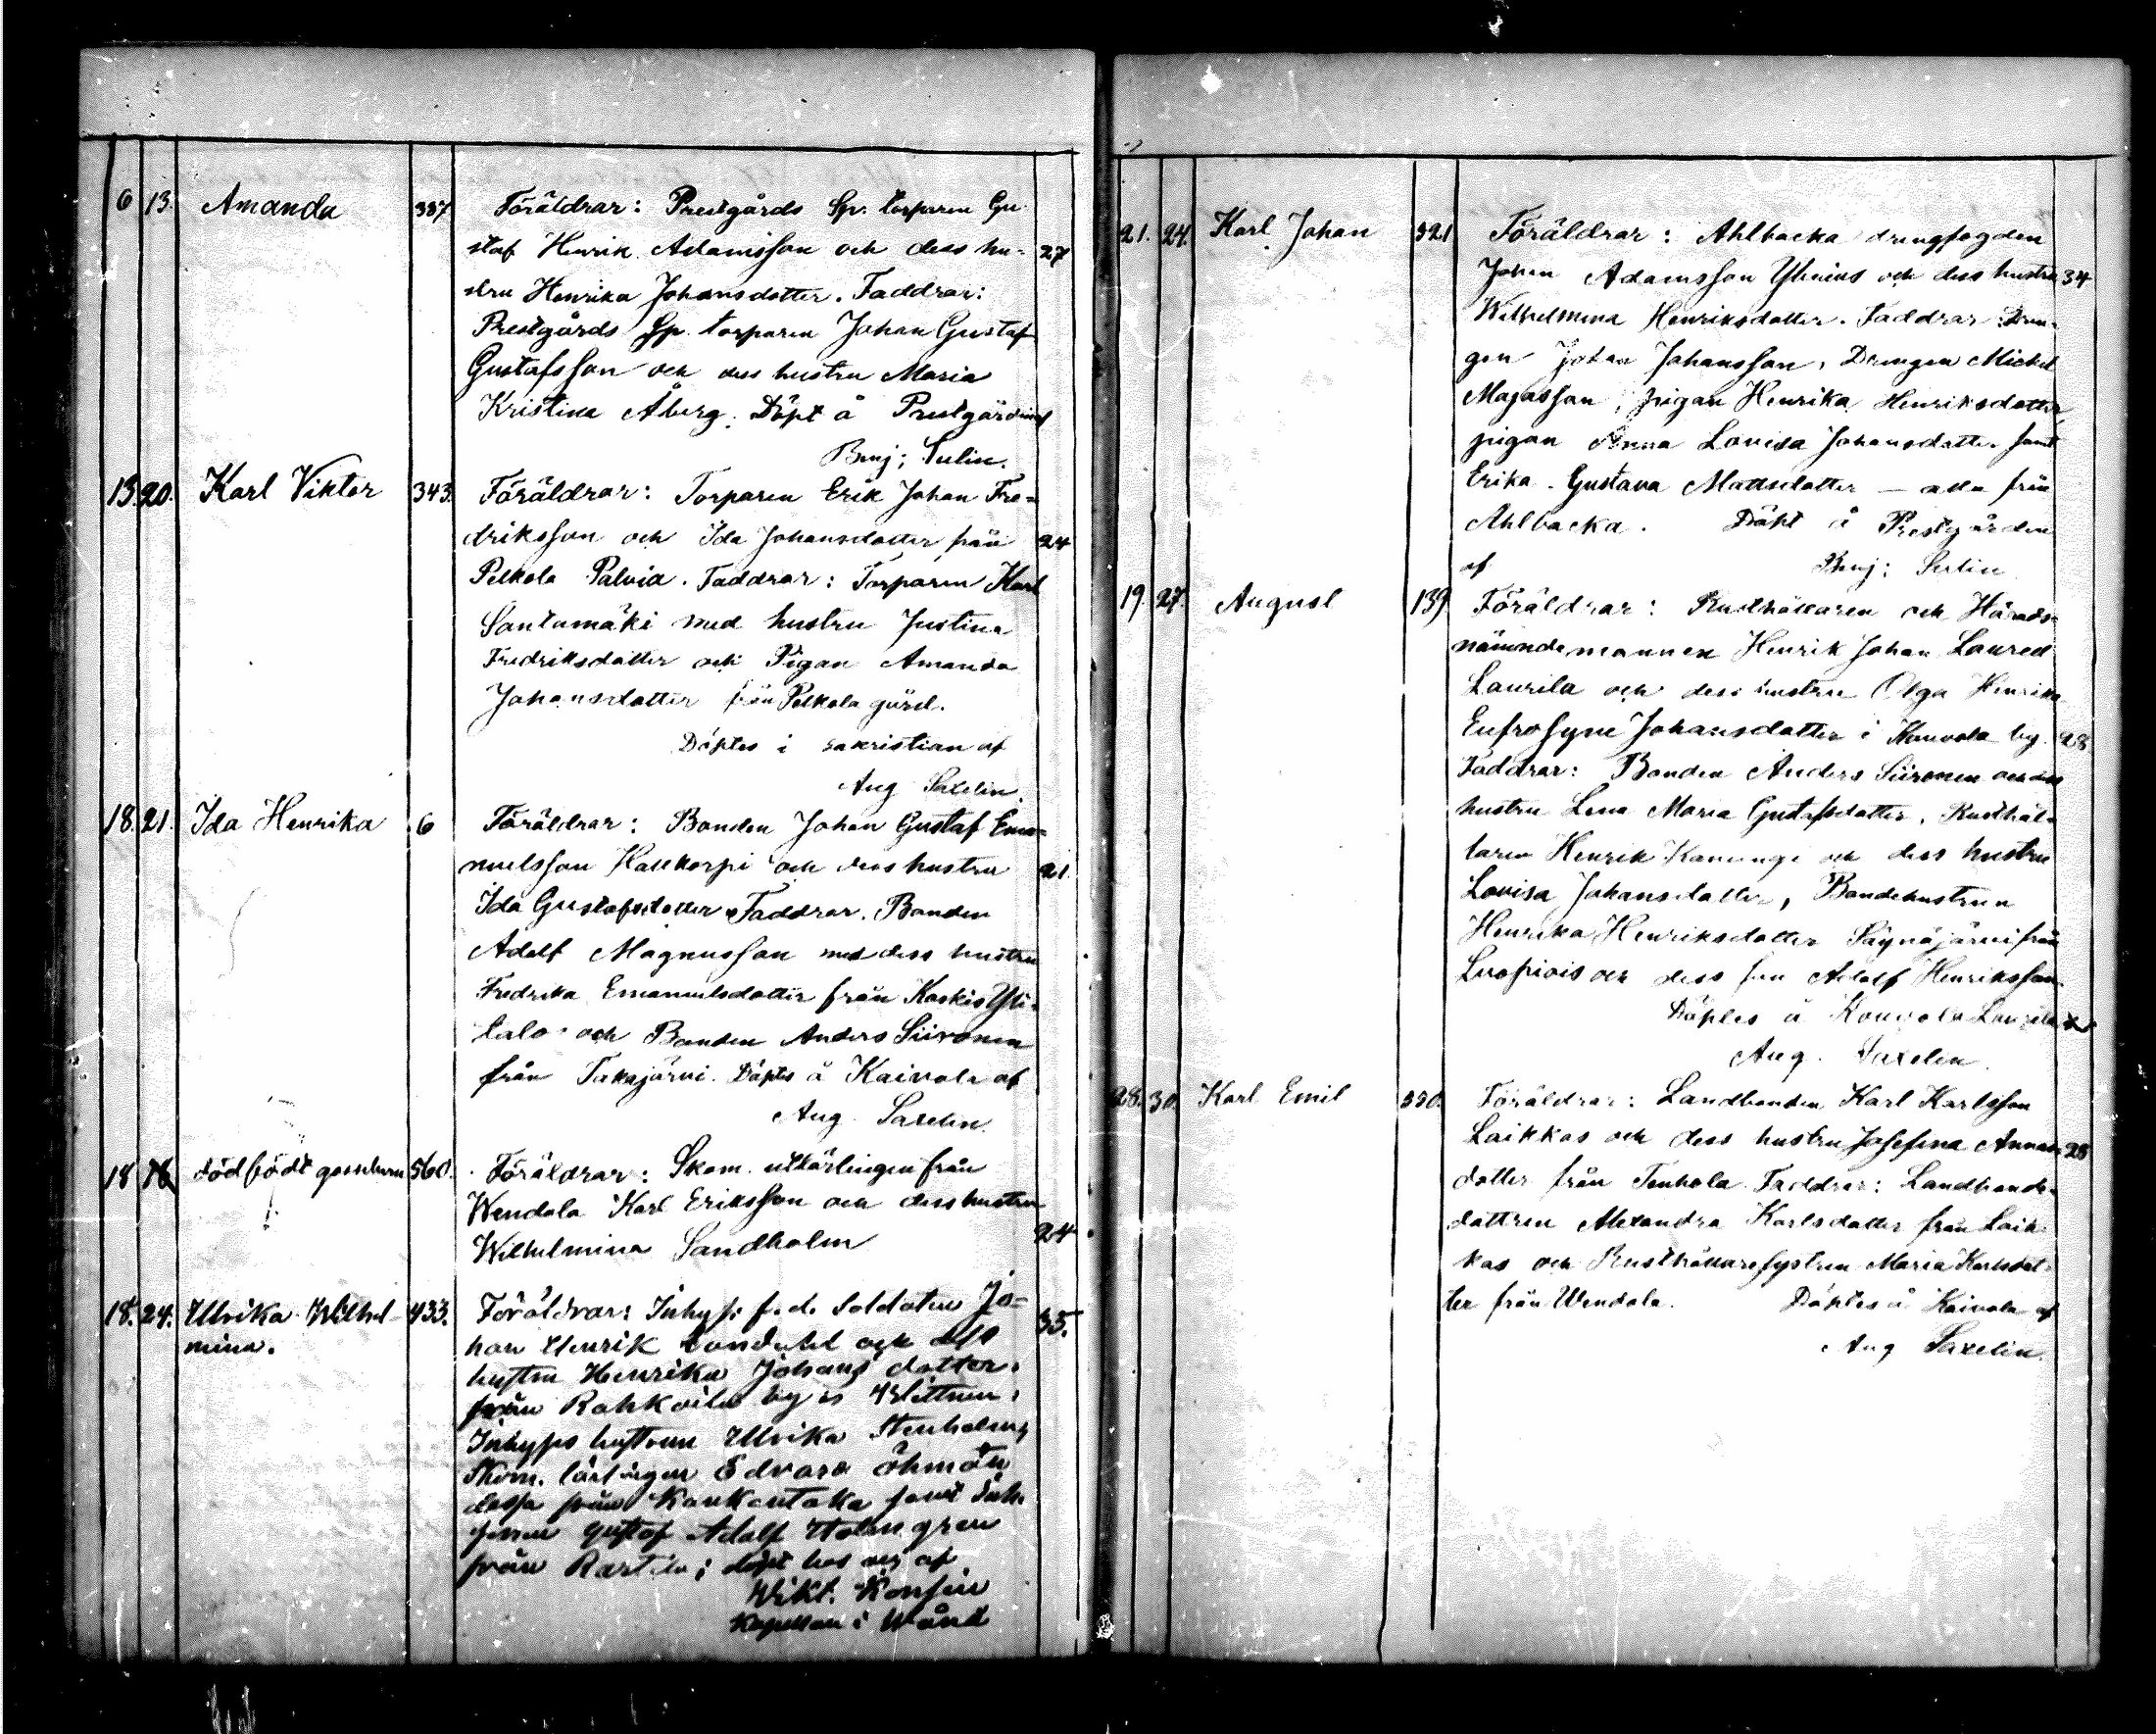 6 13. Amanda 387 Föräldrar: Prestgårds Sp. torparen Gu-
staf Henrik Adamsson och dess hu- 27
stru Henrika Johansdotter. Faddrar:
Prestgårds Sp. torparen Johan Gustaf
Gustafsson och dess hustru Maria
Kristina Åberg. Döpt å Prestgården af
Benj: Sulin.
13. 20. Karl Viktor 343. Föräldrar: Torparen Erik Johan Fre-
driksson och Ida Johansdotter från 24
Pelkola Palvia. Faddrar: Torparen Karl
Santamäki med hustru Justina
Fredriksdotter och Pigan Amanda
Johansdotter från Pelkola gård.
Döptes i sakristian af
Aug Saxelin.
18. 21. Ida Henrika 6 Föräldrar: Bonden Johan Gustaf Ema-
nuelsson Kallkorpi och dess hustru 21.
Ida Gustafsdotter. Faddrar. Bonden
Adolf Magnusson med dess hustru
Fredrika Emanuelsdotter från Kaskis Yli-
talo och Bonden Anders Siironen
från Takajärvi. Döptes å Kaivola af
Aug. Saxelin.
18 dödfödt gossebarn 560. Föräldrar: Skom. utlärlingen från
Wendola Karl Eriksson och dess hustru
Wilhelmina Sandholm 24
18. 24. Ulrika Wilhel- 433. Föräldrar: Inhys: f.d. Soldaten Jo- 35.
mina. han Henrik och dess
hustru Henrika Johans dotter.
från Rahkoila by; Wittnen:
Inhyses hustrun Ulrika Stenholm,
Skom. lärlingen Edvard Öhman
dessa från Kankantaka samt Inh.
Gustaf Adolf Holmgren
från; döpt hos mig af
Wikt. Konsin
Kapellan i Wånå
21. 24. Karl Johan 321 Föräldrar: Ahlbacka drengfogden
Johan Adamsson Ylenius och dess hustru 34
Wilhelmina Henriksdotter. Faddrar: Dren-
gen Johan Johansson, Drengen Mickel
Majasson, pigan Henrika Henriksdotter,
pigan Anna Lovisa Johansdotter samt
Erika Gustava Mattsdotter — alla från
Ahlbacka. Döpt å Prestgården
af Benj: Sulin
19. 27. August 139. Föräldrar: Rusthållaren och Härads-
nämndemannen Henrik Johan Laured
Laurila och dess hustru Olga Henrika
Eufrosyne Johansdotter i Konvola by. 28
Faddrar: Bonden Anders Siironen och dess
hustru Lena Maria Gustafsdotter, Rusthål-
laren Henrik och dess hustru
Lovisa Johansdotter, Bondehustrun
Henrika Henriksdotter Säynäjärvi från
Luopiois och dess son Adolf Henriksson.
Döptes å Konvola Laurila af
Aug. Saxelin.
28. 30. Karl Emil 330. Föräldrar: Landbonden Karl Karlsson
Laikkas och dess hustru Josefina Annas 28
dotter från Tenhola. Faddrar: Landbonde-
dottren Alexandra Karlsdotter från Laik-
kas och Rusthållaresystren Maria Karlsdot-
ter från Wendola. Döptes å Kaivola af
Aug Saxelin.